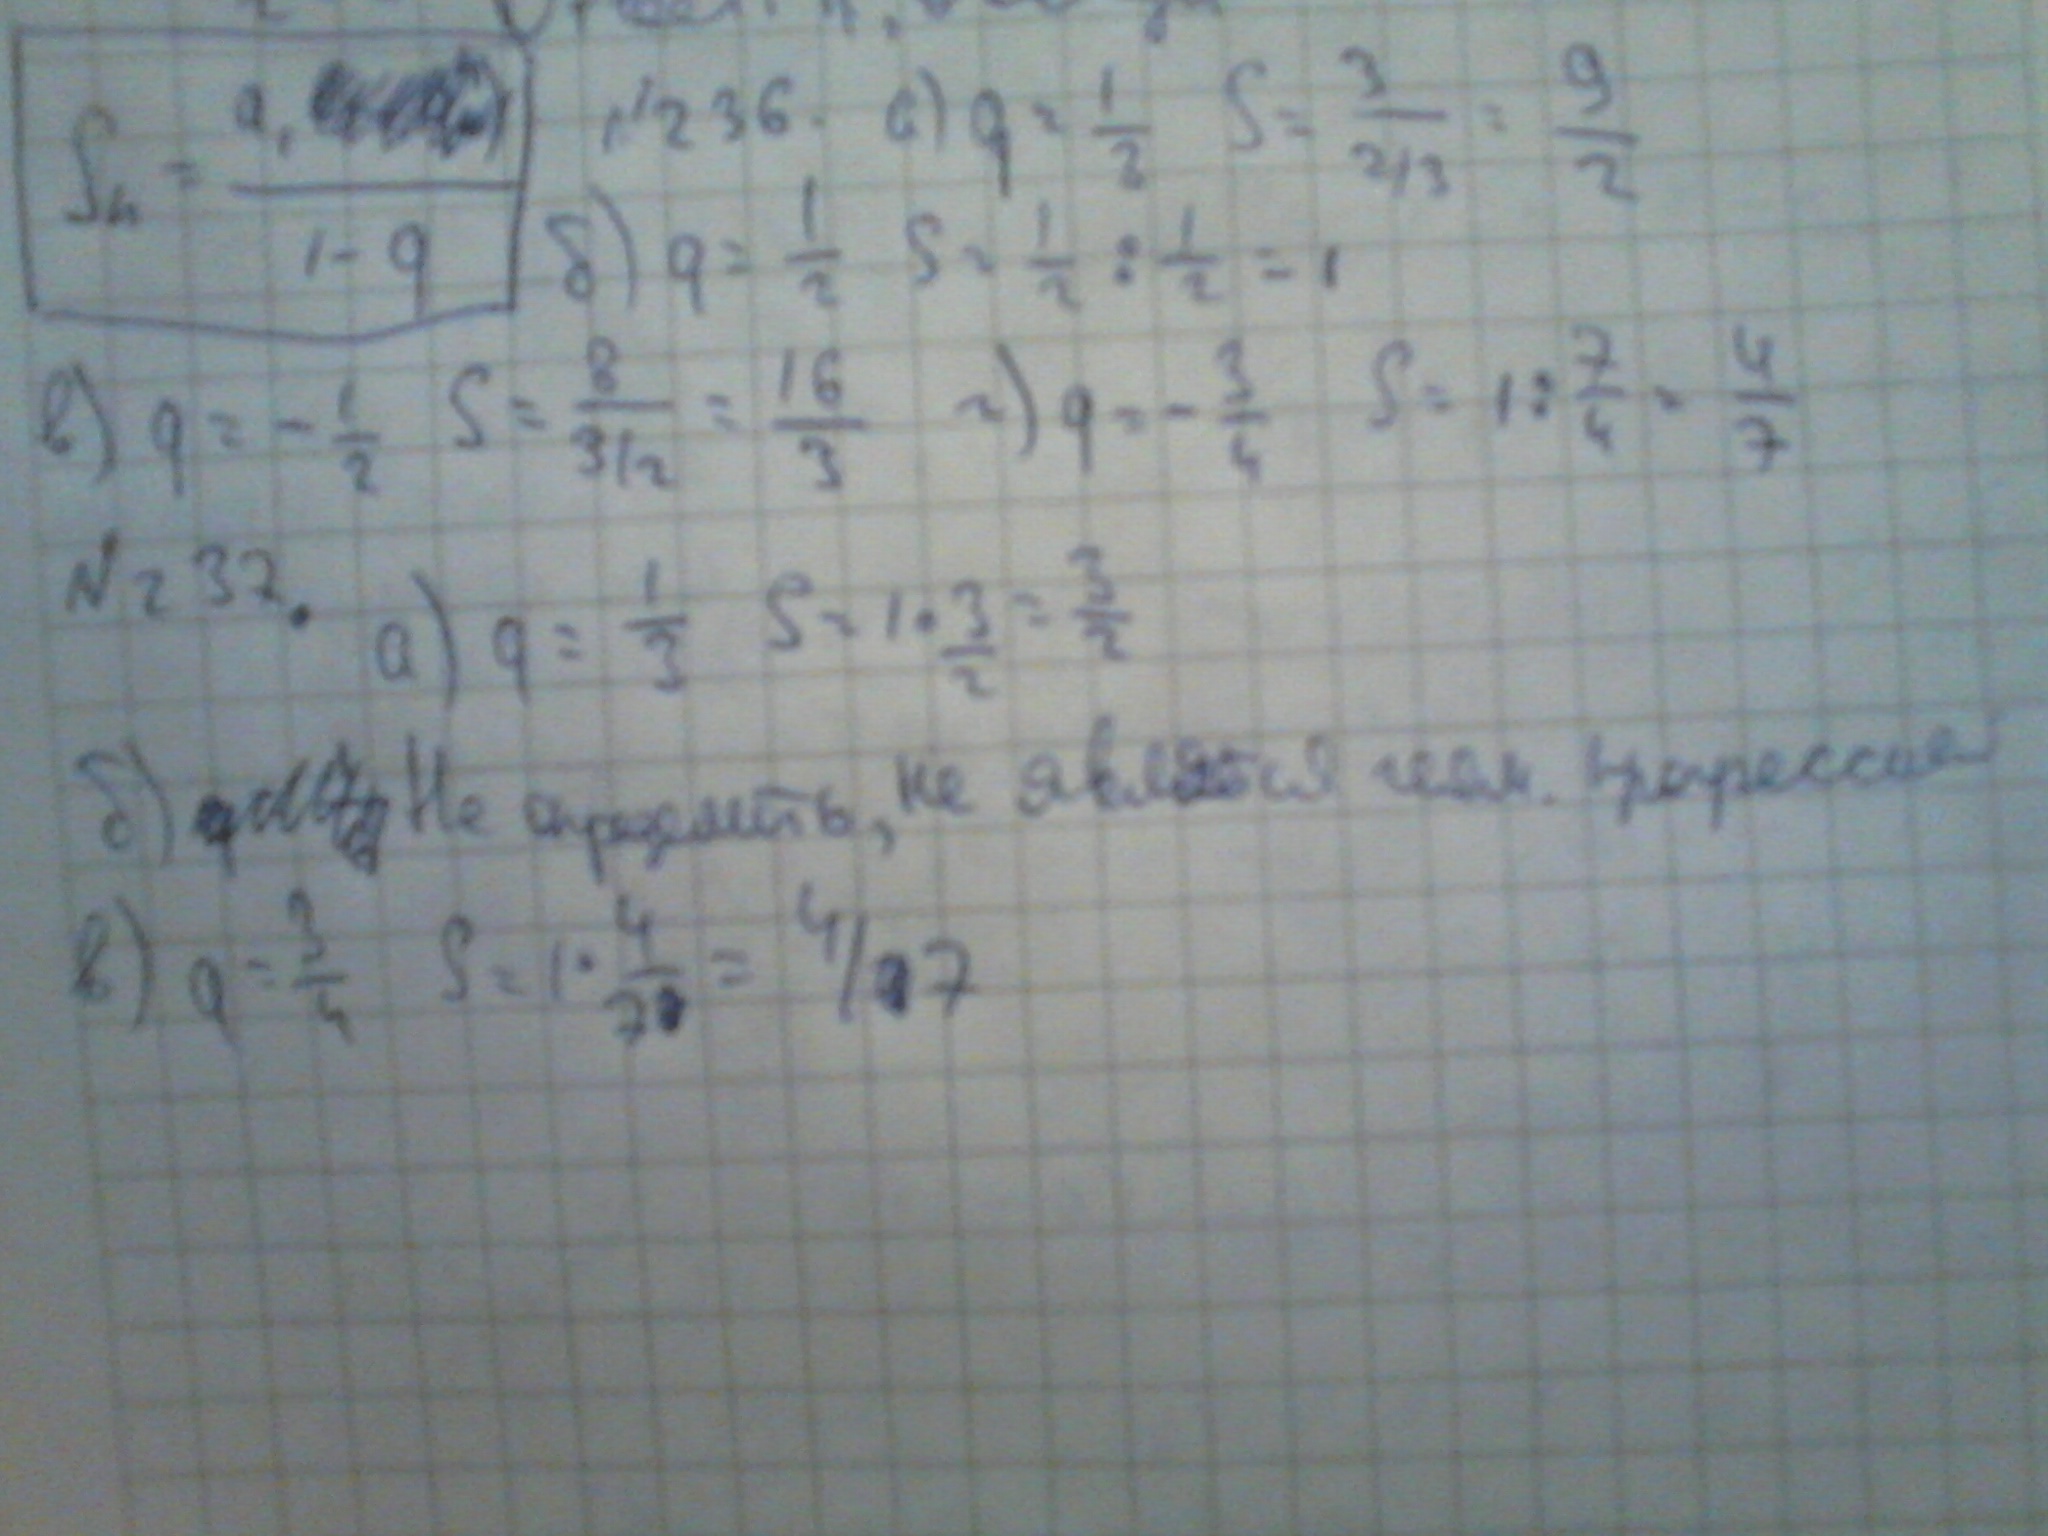 Sn = a₁ / (1 - q)
N 236. а) q = 1/2 S = 3 / (2/3) = 9/2
б) q = 1/2 S = 1/2 : 1/2 = 1
в) q = - 1/2 S = 8 / (3/2) = 16/3 г) q = - 3/4 S = 1 : 7/4 = 4/7
N 237. а) q = 1/3 S = 1 · 3/2 = 3/2
б) Не определить, не является геом. прогрессией
в) q = 3/4 S = 1 · 4/7 = 4/7